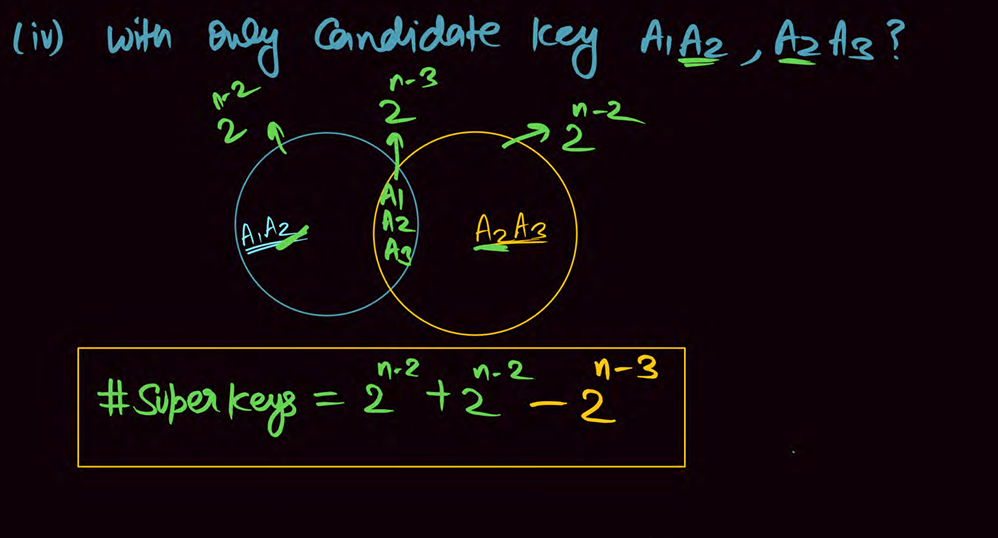 (iv) with only Candidate key A1A2, A2A3?
2^n-2 2^n-3 2^n-2
A1
A1A2 A2 A2A3
A3
#Super keys = 2^n-2 + 2^n-2 - 2^n-3